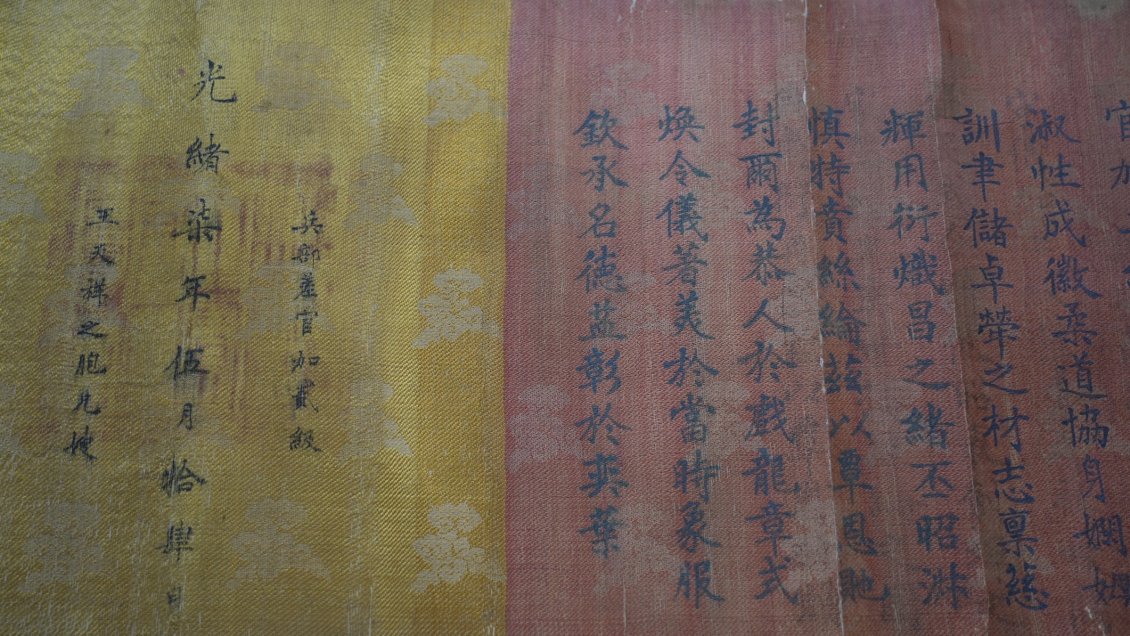 官加
淑性成徽柔道協身嫻姆
訓聿儲卓犖之材志稟慈
煇用衍熾昌之緒丕昭淑
慎特賁絲綸茲以覃恩貤
封爾為恭人於戲龍章式
煥令儀著美於當時象服
欽承名德益彰於奕葉
兵部差官加貳級
光緒柒年伍月拾肆日
王天祥之胞兄嫂